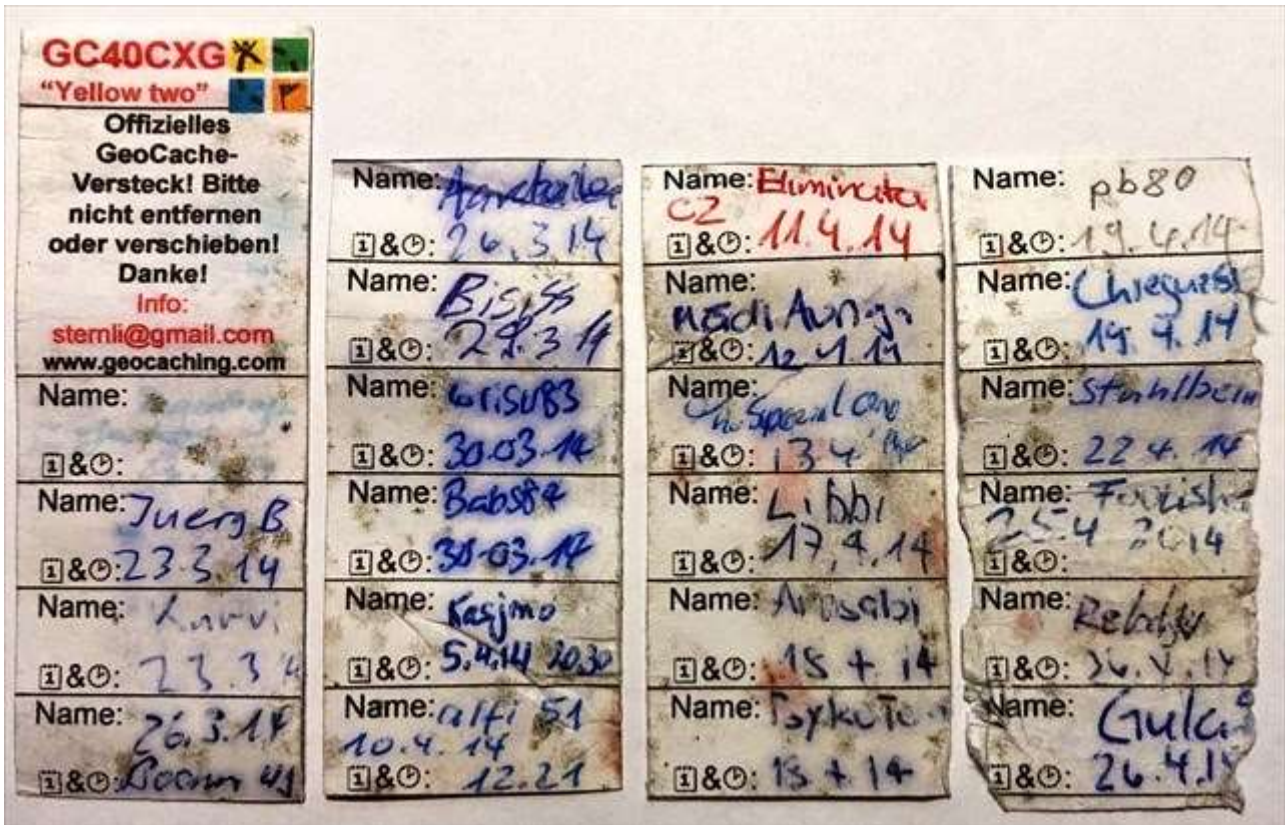 GC40CXG
"Yellow two"
Offizielles
GeoCache-
Versteck! Bitte
nicht entfernen
oder verschieben!
Danke!
Info:
sternli@gmail.com
www.geocaching.com
Name:
&:
Name: Juerg B
&: 23.3.14
Name:
&: 23.3.14
Name:
26.3.14
&:
Name:
&: 26.3.14
Name: Bisiss
&: 29.3 14
Name: Grisu83
&: 30.03.14
Name: Babs84
&: 30.03.14
Name: Kasjmo
&: 5.4.14 2030
Name: alfi 51
10.4.14
&: 12.21
Name: Eliminator
CZ
&: 11.4.14
Name:
&: 12 4 14
Name:
Special One
&: 13 4
Name: Libbi
&: 17.4.14
Name: Arosabi
&: 18 4 14
Name:
&: 18 4 14
Name: pb80
&: 19.4.14
Name:
&: 19.4.14
Name:
&: 22 4. 14
Name:
25.4 2014
&:
Name:
&: 26.4.14
Name:
&: 26.4.14